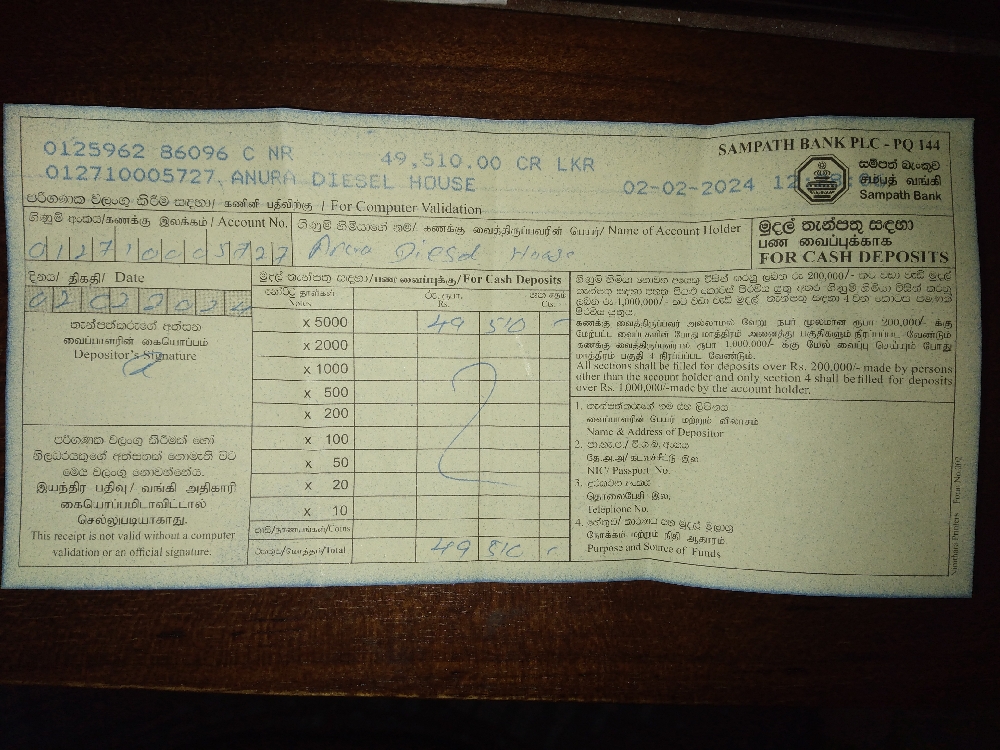 SAMPATH BANK PLC - PQ 144
0125962 86096 C NR 49,510.00 CR LKR
012710005727, ANURA DIESEL HOUSE 02-02-2024 12
සම්පත් බැංකුව
சம்பத் வங்கி
Sampath Bank
පරිගණක වලංගු කිරීම සඳහා / கணினி பதிவிற்கு / For Computer Validation
ගිණුම් අංකය/கணக்கு இலக்கம் / Account No.
012710005727
ගිණුම් හිමියාගේ නම/ கணக்கு வைத்திருப்பவரின் பெயர்/ Name of Account Holder
Anura Diesel House
මුදල් තැන්පතු සඳහා
பண வைப்புக்காக
FOR CASH DEPOSITS
දිනය/ திகதி/ Date
02022024
තැන්පත්කරුගේ අත්සන
வைப்பாளரின் கையொப்பம்
Depositor's Signature
පරිගණක වලංගු කිරීමක් හෝ
නිලධරයකුගේ අත්සනක් නොමැති විට
මෙය වලංගු නොවන්නේය.
இயந்திர பதிவு/ வங்கி அதிகாரி
கையொப்பமிடாவிட்டால்
செல்லுபடியாகாது.
This receipt is not valid without a computer
validation or an official signature.
මුදල් තැන්පතු සඳහා/பண வைப்புக்கு/For Cash Deposits
Notes Rs. Cts.
x 5000 49 510
x 2000
x 1000
x 500
x 200
x 100
x 50
x 20
x 10
Coins
Total 49 510
கணக்கு வைத்திருப்பவர் அல்லாமல் வேறு நபர் மூலமான ரூபா 200,000/- க்கு
மேற்பட்ட வைப்புகளின் போது மாத்திரம் அனைத்து பகுதிகளும் நிரப்பப்பட வேண்டும்.
ரூபா 1,000,000/- க்கு மேல் வைப்பு செய்யும் போது
மாத்திரம் பகுதி 4 நிரப்பப்பட வேண்டும்.
All sections shall be filled for deposits over Rs. 200,000/- made by persons
other than the account holder and only section 4 shall be filled for deposits
over Rs. 1,000,000/-made by the account holder.
1. තැන්පත්කරුගේ නම සහ ලිපිනය
வைப்பாளரின் பெயர் மற்றும் விலாசம்
Name & Address of Depositor
2.
தே.அ.அ/ கடவுச்சீட்டு இல.
NIC/ Passport No.
3. දුරකථන අංකය
தொலைபேசி இல.
Telephone No.
4.
நோக்கம் மற்றும் நிதி ஆதாரம்
Purpose and Source of Funds